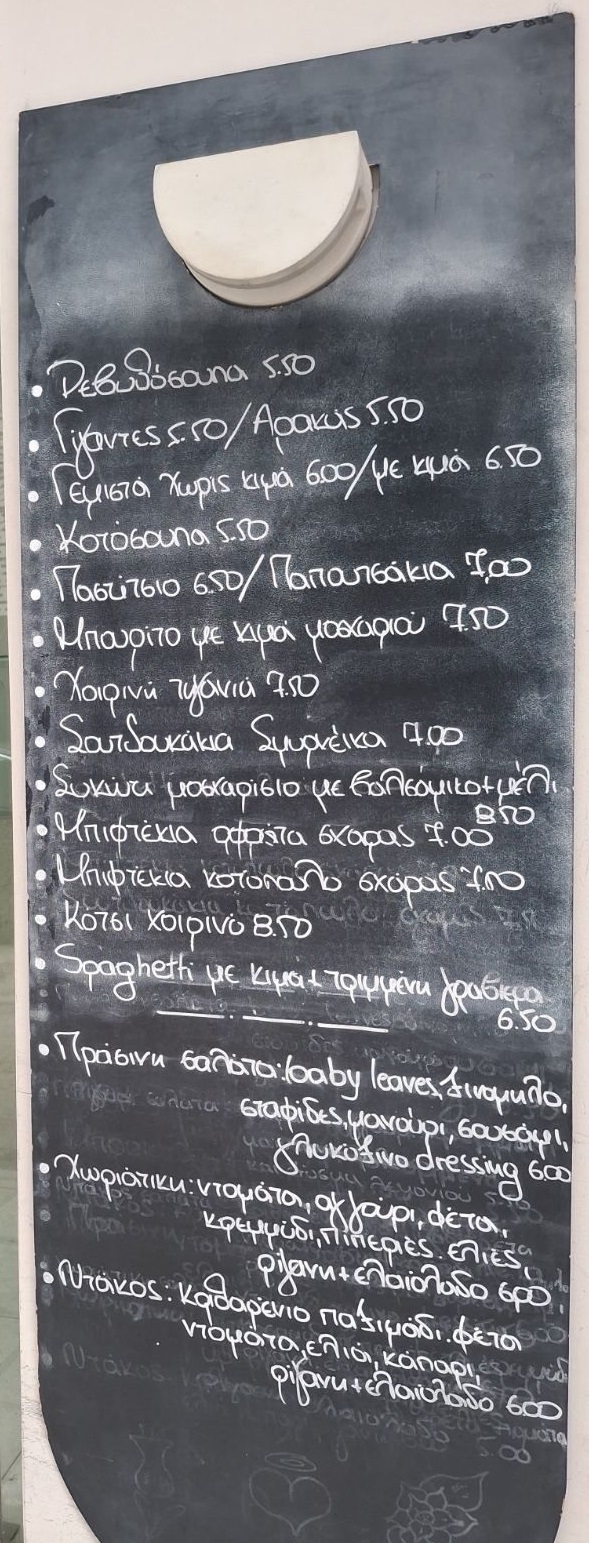 • Ρεβυθόσουπα 5.50
• Γίγαντες 5.50/Αρακάς 5.50
• Γεμιστά χωρίς κιμά 6.00/με κιμά 6.50
• Κοτόσουπα 5.50
• Παστίτσιο 6.50/Παπουτσάκια 7,00
• Μπουρίτο με κιμά μοσχαριού 7.50
• Χοιρινή τηγανιά 7.50
• Σουτζουκάκια Σμυρνέικα 7.00
• Συκώτι μοσχαρίσιο με βαλσάμικο+μέλι
8.50
• Μπιφτέκια αφράτα σχάρας 7.00
• Μπιφτέκια κοτόπουλο σχάρας
• Κότσι χοιρινό 8.50
• Spaghetti με κιμά+τριμμένη γραβιέρα
6.50
• Πράσινη σαλάτα: baby leaves, ξινόμηλο,
σταφίδες, μανούρι, σουσάμι,
γλυκόξινο dressing 6.00
• Χωριάτικη: ντομάτα, αγγούρι, φέτα,
κρεμμύδι, πιπεριές, ελιές,
ρίγανη+ελαιόλαδο 6.00
• Ντάκος: κριθαρένιο παξιμάδι, φέτα
ντομάτα, ελιά, κάπαρι,
ρίγανη+ελαιόλαδο 6.00